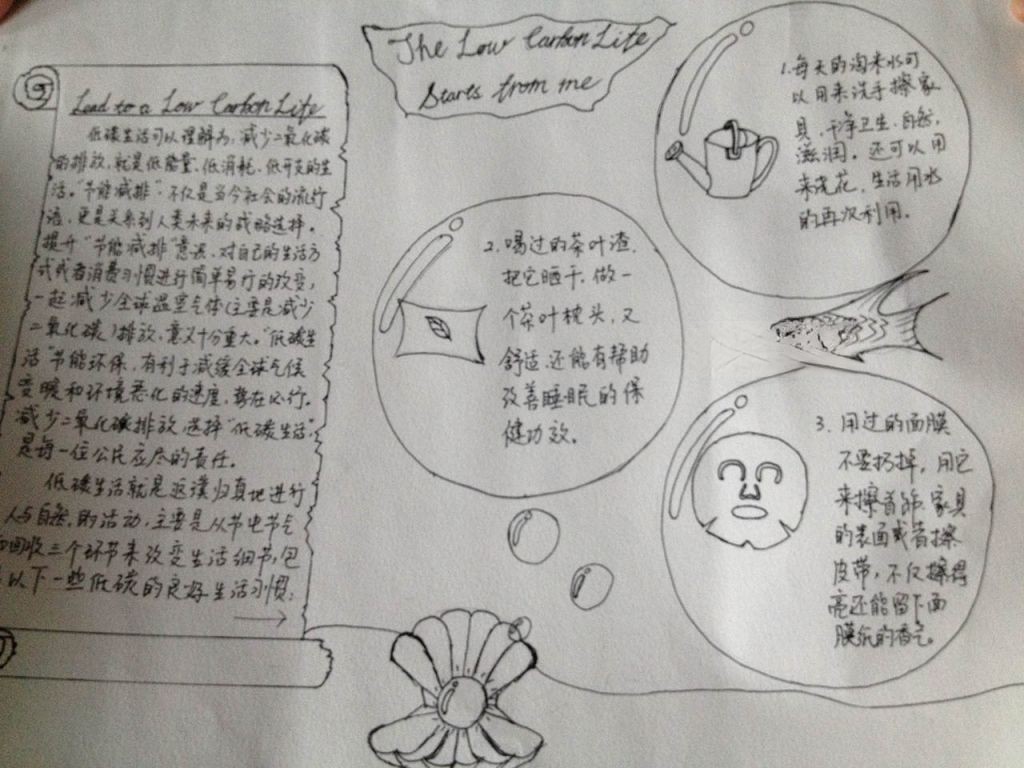 The Low Carbon Life
Starts from me
Lead to a Low Carbon Life
低碳生活可以理解为,减少二氧化碳
的排放,就是低能量、低消耗、低开支的生
活。“节能减排”,不仅是当今社会的流行
语,更是关系到人类未来的战略选择。
提升“节能减排”意识,对自己的生活方
式或者消费习惯进行简单易行的改变,
一起减少全球温室气体(主要是减少
二氧化碳)排放,意义十分重大。“低碳生
活”节能环保,有利于减缓全球气候
变暖和环境恶化的速度,势在必行。
减少二氧化碳排放,选择“低碳生活”,
是每一位公民应尽的责任。
低碳生活就是返璞归真地进行
人与自然的活动,主要是从节电节气
和回收三个环节来改变生活细节,包
以下一些低碳的良好生活习惯:
1.每天的淘米水可
以用来洗手擦家
具,干净卫生,自然,
滋润。还可以用
来浇花,生活用水
的再次利用.
2.喝过的茶叶渣,
把它晒干,做一
个茶叶枕头,又
舒适,还能有帮助
改善睡眠的保
健功效。
3.用过的面膜
不要扔掉,用它
来擦首饰、家具
的表面或者擦
皮带,不仅擦得
亮还能留下面
膜纸的香气。